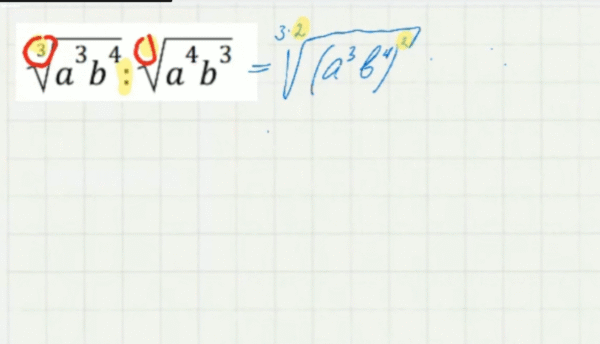 ∛(a³b⁴) : √(a⁴b³) = ³·²√(a³b⁴)²